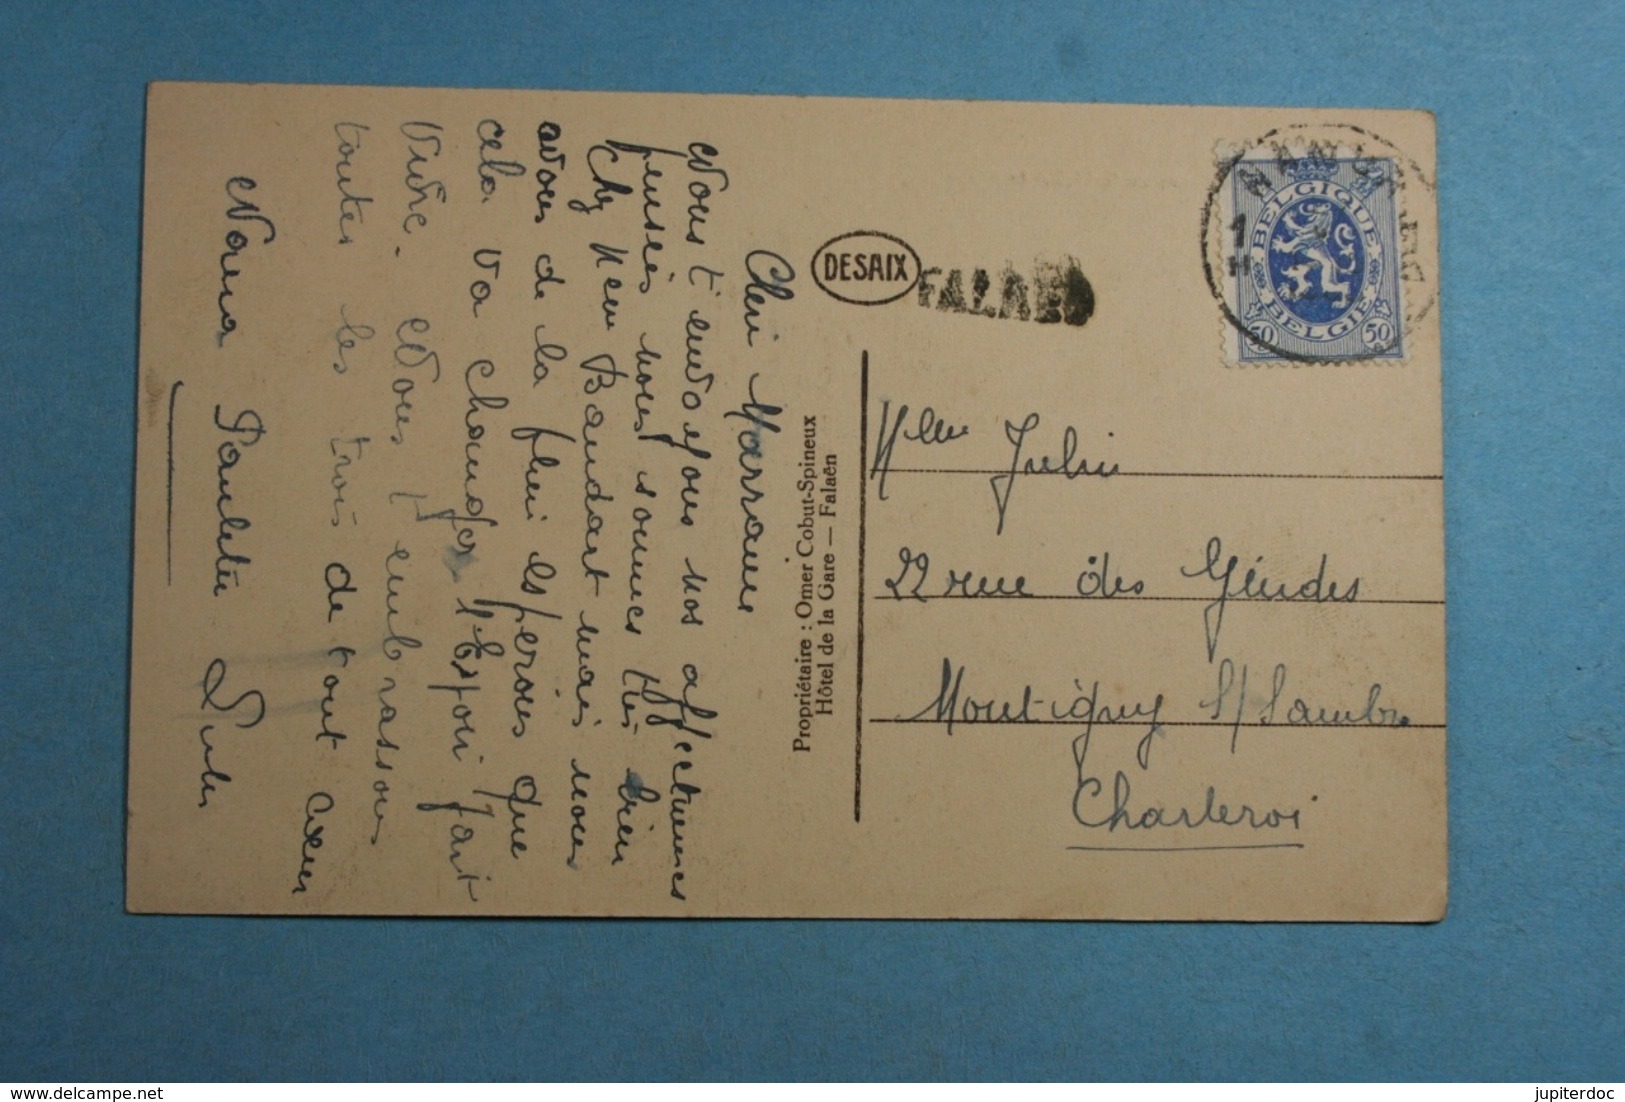 Chère Marraine
Nous t'envoyons nos affectueuses
pensées nous sommes très bien
chez Mme Baudart mais nous
avons de la pluie espérons que
cela va changer l'Espoir fait
vivre. Nous t'embrassons
toutes les trois de tout cœur
Nona Paulette
DESAIX
FALAEN
Propriétaire : Omer Cobut-Spineux
Hôtel de la Gare — Falaën
BELGIQUE
BELGIE
50 50
NAMUR
1
Mme Julin
22 rue des
Montigny s/Sambre
Charleroi
delcampe.net
jupiterdoc